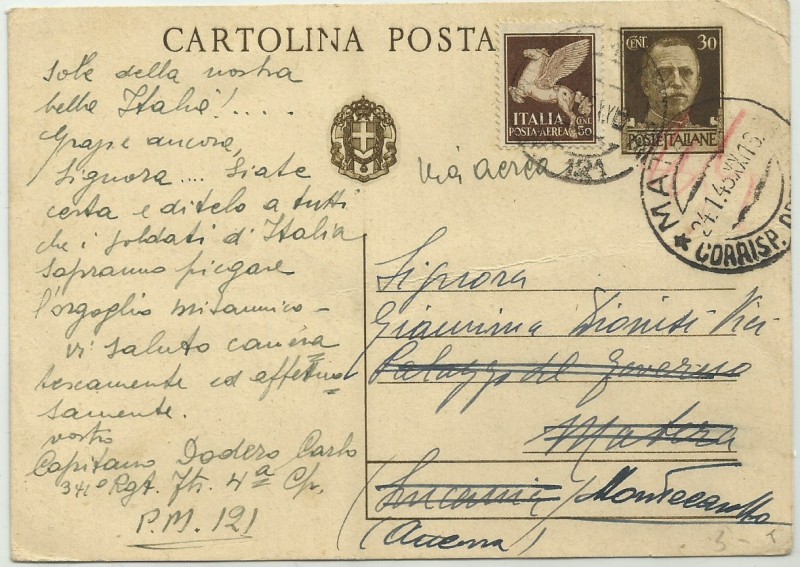 CARTOLINA POSTA
CENT. 30
POSTE ITALIANE
ITALIA
POSTA-AEREA
CENT. 50
sole della nostra
bella Italia!....
Grazie ancora,
Signora.... Siate
certa e ditelo a tutti
che i soldati d'Italia
sapranno piegare
l'orgoglio britannico -
vi saluto camera
tescamente ed affettuo
samente.
vostro
Capitano Dodero Carlo
341° Rgt. Ftr. 4ª Cp.
P.M. 121
via aerea
131
24.1.43.XXI
CORRISP.
Signora
Giannina Dionisi Vici
Palazzo del Governo
Matera
(Lucania) Montecarotto
(Ancona)